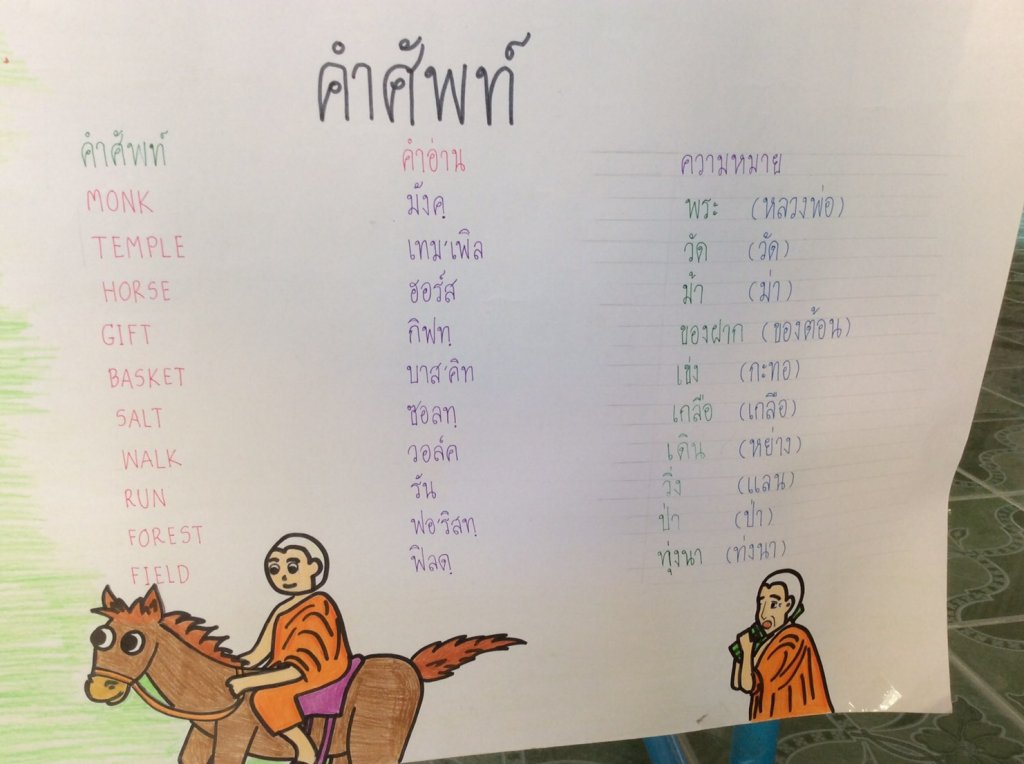 คำศัพท์
คำศัพท์ คำอ่าน ความหมาย
MONK มังคฺ พระ (หลวงพ่อ)
TEMPLE เทม'เพิล วัด (วัด)
HORSE ฮอร์ส ม้า (ม่า)
GIFT กิฟทฺ ของฝาก (ของต้อน)
BASKET บาส'คิท เข่ง (กะทอ)
SALT ซอลทฺ เกลือ (เกลือ)
WALK วอล์ค เดิน (หย่าง)
RUN รัน วิ่ง (แลน)
FOREST ฟอ'ริสทฺ ป่า (ป่า)
FIELD ฟิลดฺ ทุ่งนา (ท่งนา)